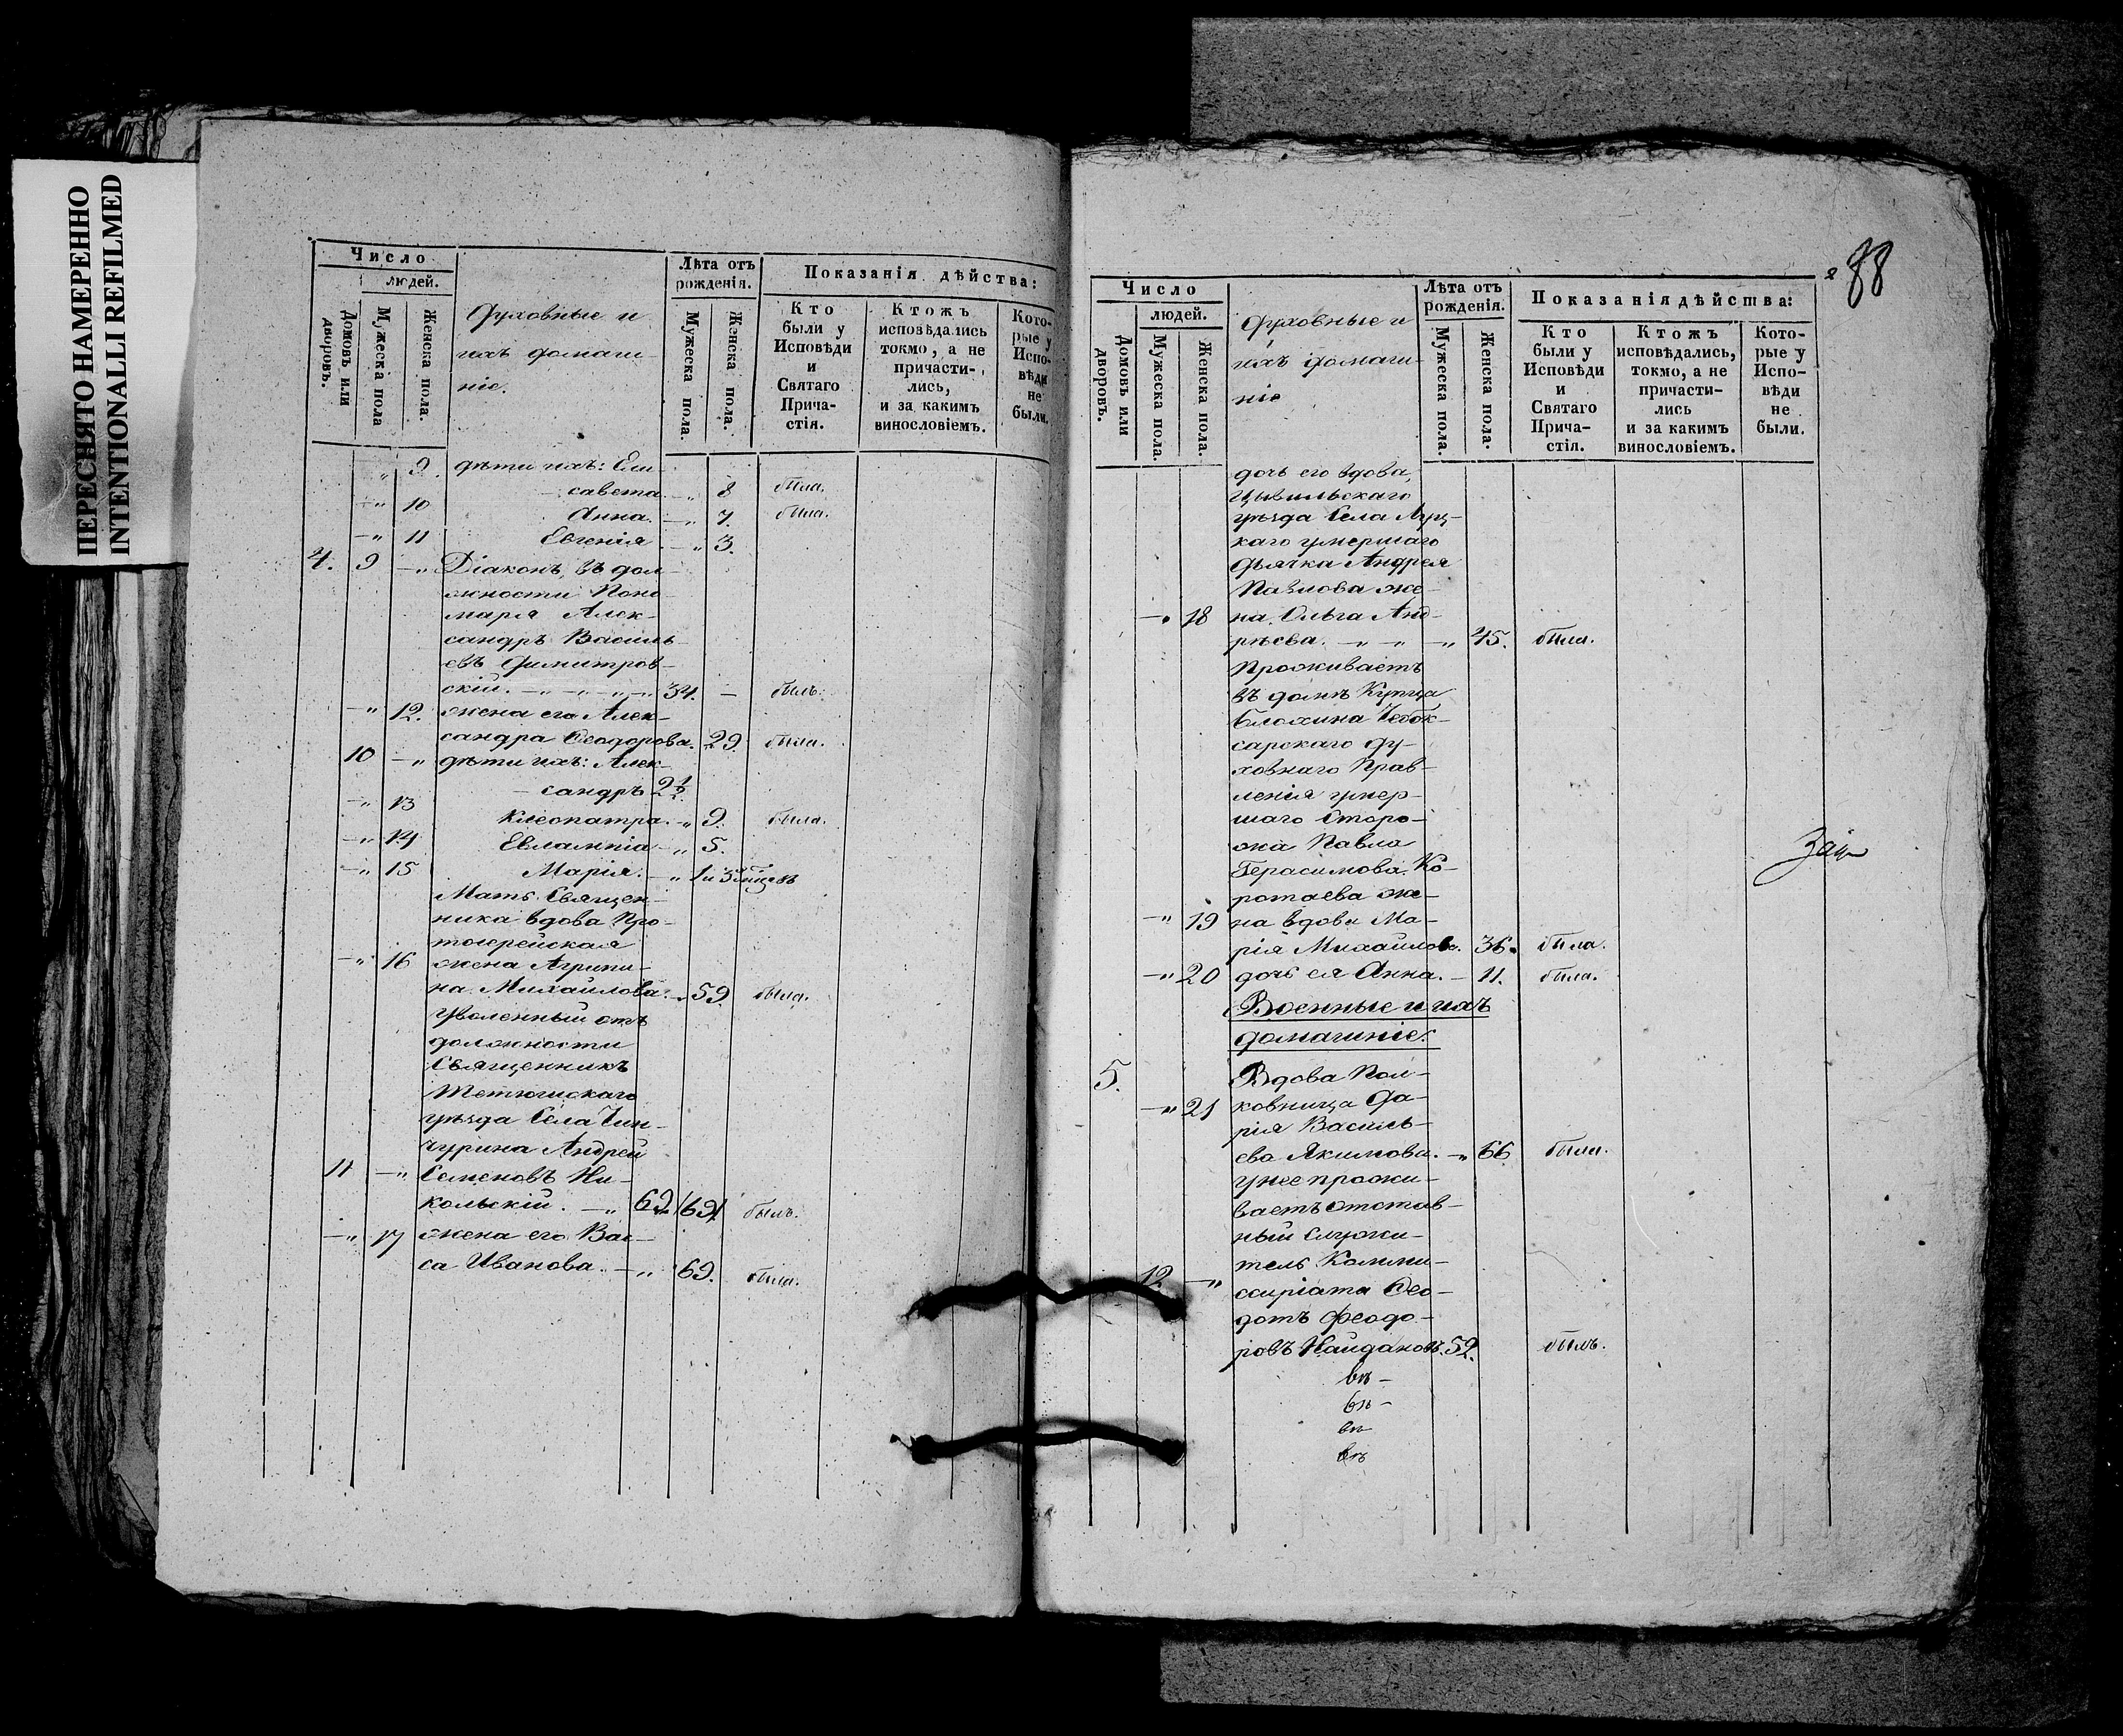 ПЕРЕСНЯТО НАМЕРЕННО
INTENTIONALLI REFILMED
Число
людей.
Домовъ или дворовъ.
Мужеска пола
Женска пола.
Духовные и
ихъ домаш-
ніе.
Лѣта отъ рожденія.
Мужеска пола.
Женска пола.
Показанія дѣйства:
Кто были у Исповѣди и Святаго Прича- стія.
Ктожъ исповѣдались токмо, а не причасти- лись, и за какимъ винословіемъ.
Кото- рые у Испо- вѣди не были.
„ 9. дѣти ихъ: Ели-
савета. — „ 8 была.
—„ 10 Анна. — „ 7. была.
—„ 11 Евгенія — „ 3.
4. 9 —„ Діаконъ, въ дол-
жности Поно-
маря Алек-
сандръ Василь-
евъ Димитров-
скій. —„ —„ —„ 34. — былъ.
—„ 12. жена его Алек-
сандра Ѳеодорова. 29. была.
10 —„ дѣти ихъ: Алек-
сандръ 2½.
—„ 13 Клеопатра. —„ 9. была.
—„ 14 Евлампія —„ 5.
—„ 15 Марія. —„ 1 и 3 мѣсяцевъ
Мать Священ-
ника вдова Про-
тоіерейская
—„ 16 жена Агрипи-
на Михайлова. —„ 59. была.
Уволенный отъ
должности
Священникъ
Тетюшскаго
уѣзда Села Чин-
чурина Андрей
11 —„ Семеновъ Ни-
кольскій. —„ 69 /69/ былъ.
—„ 17 жена его Вас-
са Иванова. —„ 69. была.
88
Число
людей.
Домовъ или дворовъ.
Мужеска пола.
Женска пола.
Духовные и
ихъ домаш-
ніе
Лѣта отъ рожденія.
Мужеска пола.
Женска пола.
Показанія дѣйства:
Кто были у Исповѣди и Святаго Прича- стія.
Ктожъ исповѣдались, токмо, а не причасти- лись и за какимъ винословіемъ.
Кото- рые у Испо- вѣди не были.
дочь его вдова,
Цывильскаго
уѣзда Села
каго умершаго
дьячка Андрея
Павлова же-
—„ 18 на Ольга Анд-
рѣева. —„ —„ —„ 45. была.
Проживаетъ
въ домѣ Купца
Блохина Чебок-
сарскаго Ду-
ховнаго Прав-
ленія умер-
шаго Сторо-
жа Павла
Герасимова Ко-
ротаева же-
—„ 19 на вдова Ма-
рія Михайлова. 36. была.
—„ 20 дочь ея Анна. — 11. была.
Военные и ихъ
домашніе:
5. Вдова Пол-
—„ 21 ковница Да-
рія Василь-
ева Якимова. —„ 66 была.
у нее прожи-
ваетъ отстав-
ный служи-
тель Комми-
12 —„ ссаріата Ѳео-
дотъ Феодо-
ровъ Найдановъ. 52. былъ.